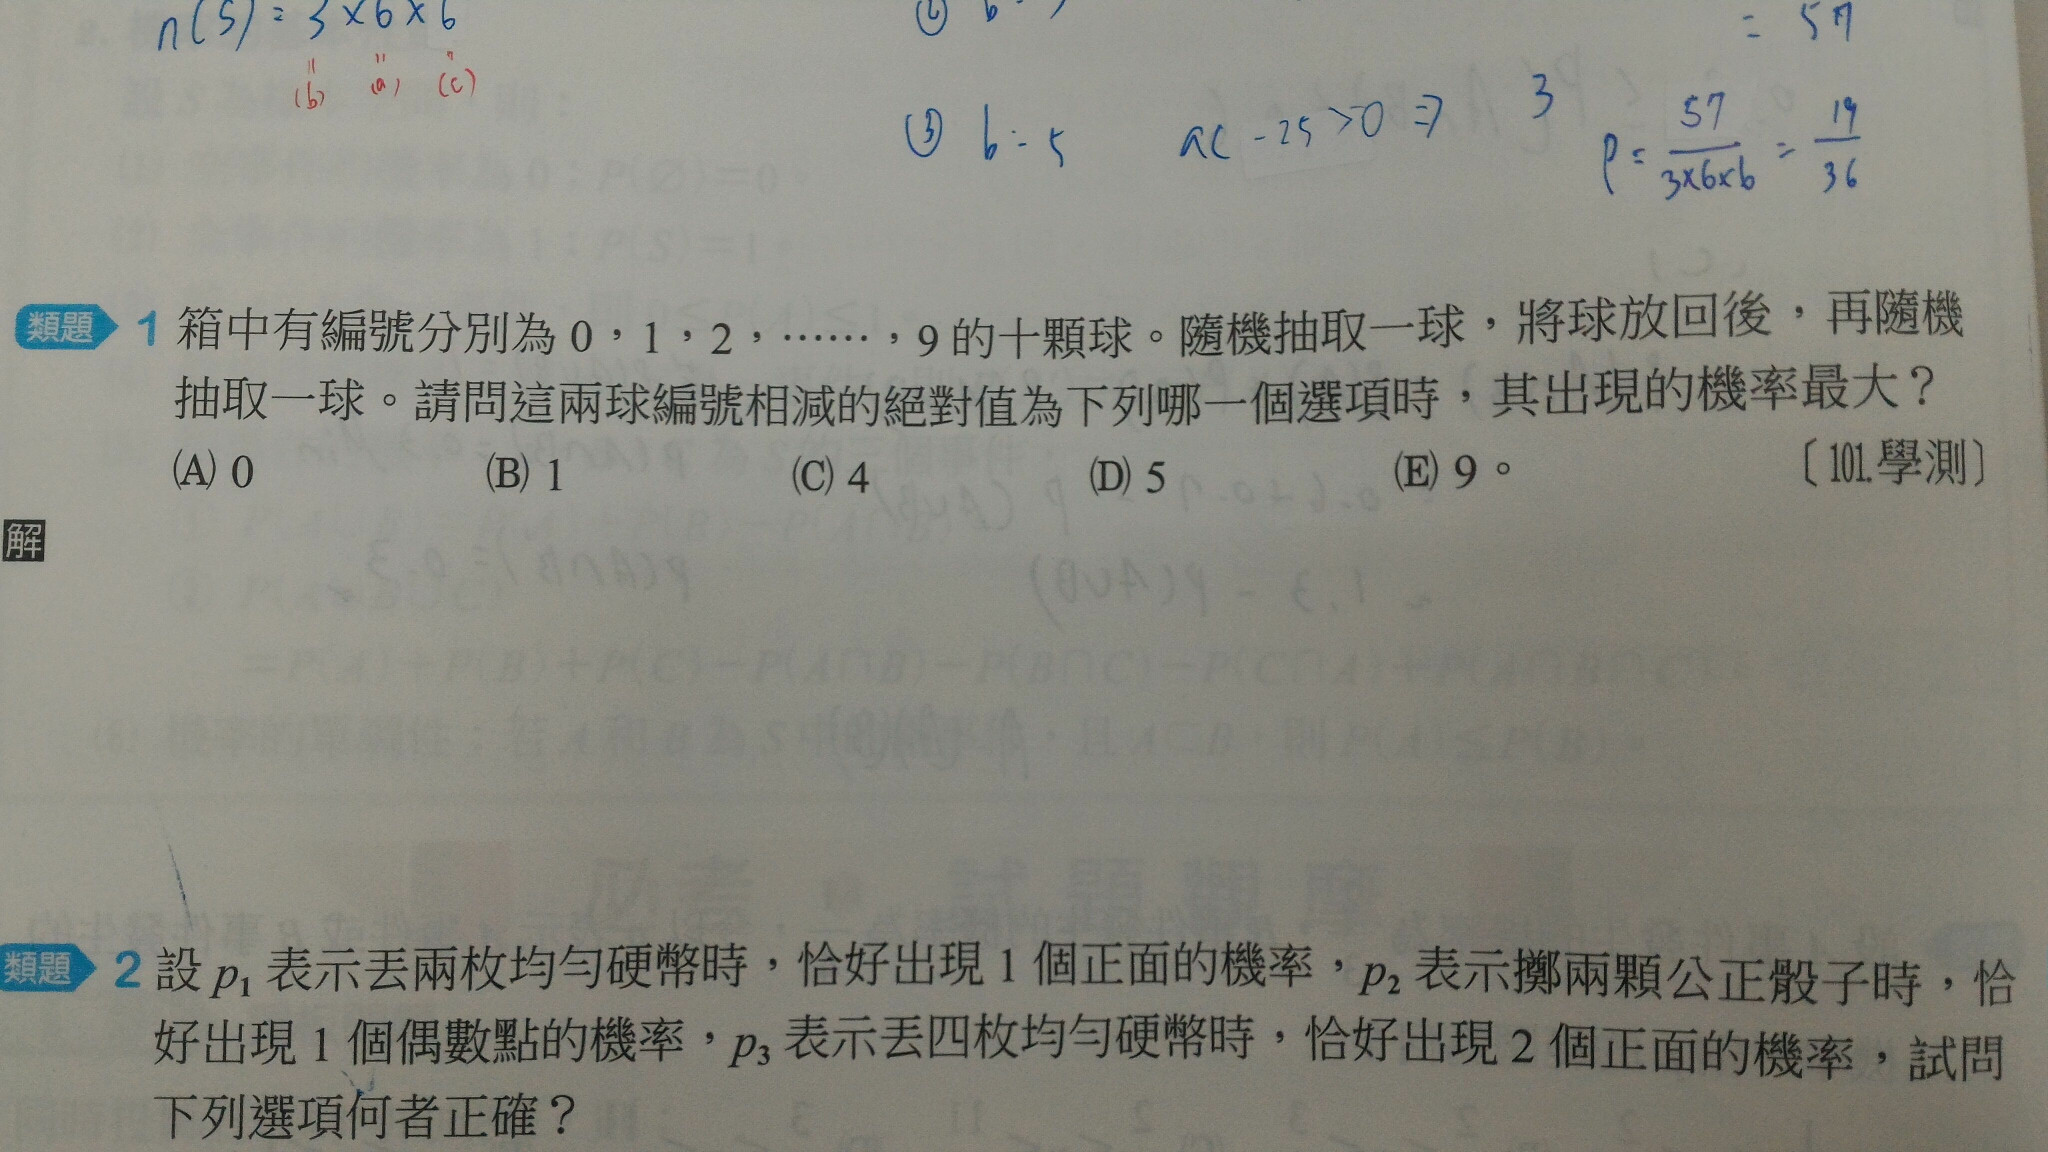 n(S) = 3×6×6
= 57
(b) (a) (c)
③ b = 5 ac - 25 > 0 ⇒ 3
P = 57/3×6×6 = 19/36
類題 1 箱中有編號分別為 0，1，2，……，9 的十顆球。隨機抽取一球，將球放回後，再隨機
抽取一球。請問這兩球編號相減的絕對值為下列哪一個選項時，其出現的機率最大？
(A) 0 (B) 1 (C) 4 (D) 5 (E) 9。 〔101.學測〕
解
=P(A)+P(B)+P(C)-P(A∩B)-P(B∩C)-P(C∩A)+P(A∩B∩C)
類題 2 設 p₁ 表示丟兩枚均勻硬幣時，恰好出現 1 個正面的機率，p₂ 表示擲兩顆公正骰子時，恰
好出現 1 個偶數點的機率，p₃ 表示丟四枚均勻硬幣時，恰好出現 2 個正面的機率，試問
下列選項何者正確？